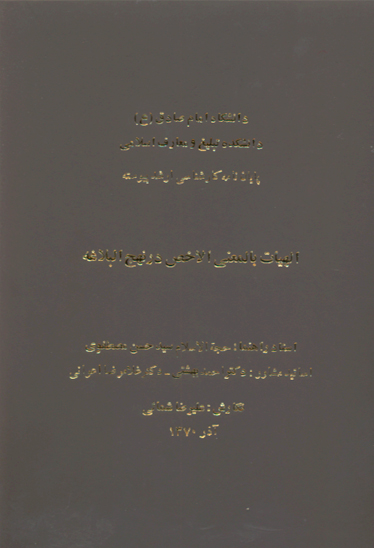 دانشگاه امام صادق (ع)
دانشکده تبلیغ و معارف اسلامی
پایان نامه کارشناسی ارشد پیوسته
الهیات بالمعنی الاخص در نهج البلاغه
استاد راهنما : حجة الاسلام سید حسن مصطفوی
اساتید مشاور : دکتر احمد بهشتی - دکتر غلامرضا اعوانی
نگارش : علیرضا شمالی
آذر ۱۳۷۰